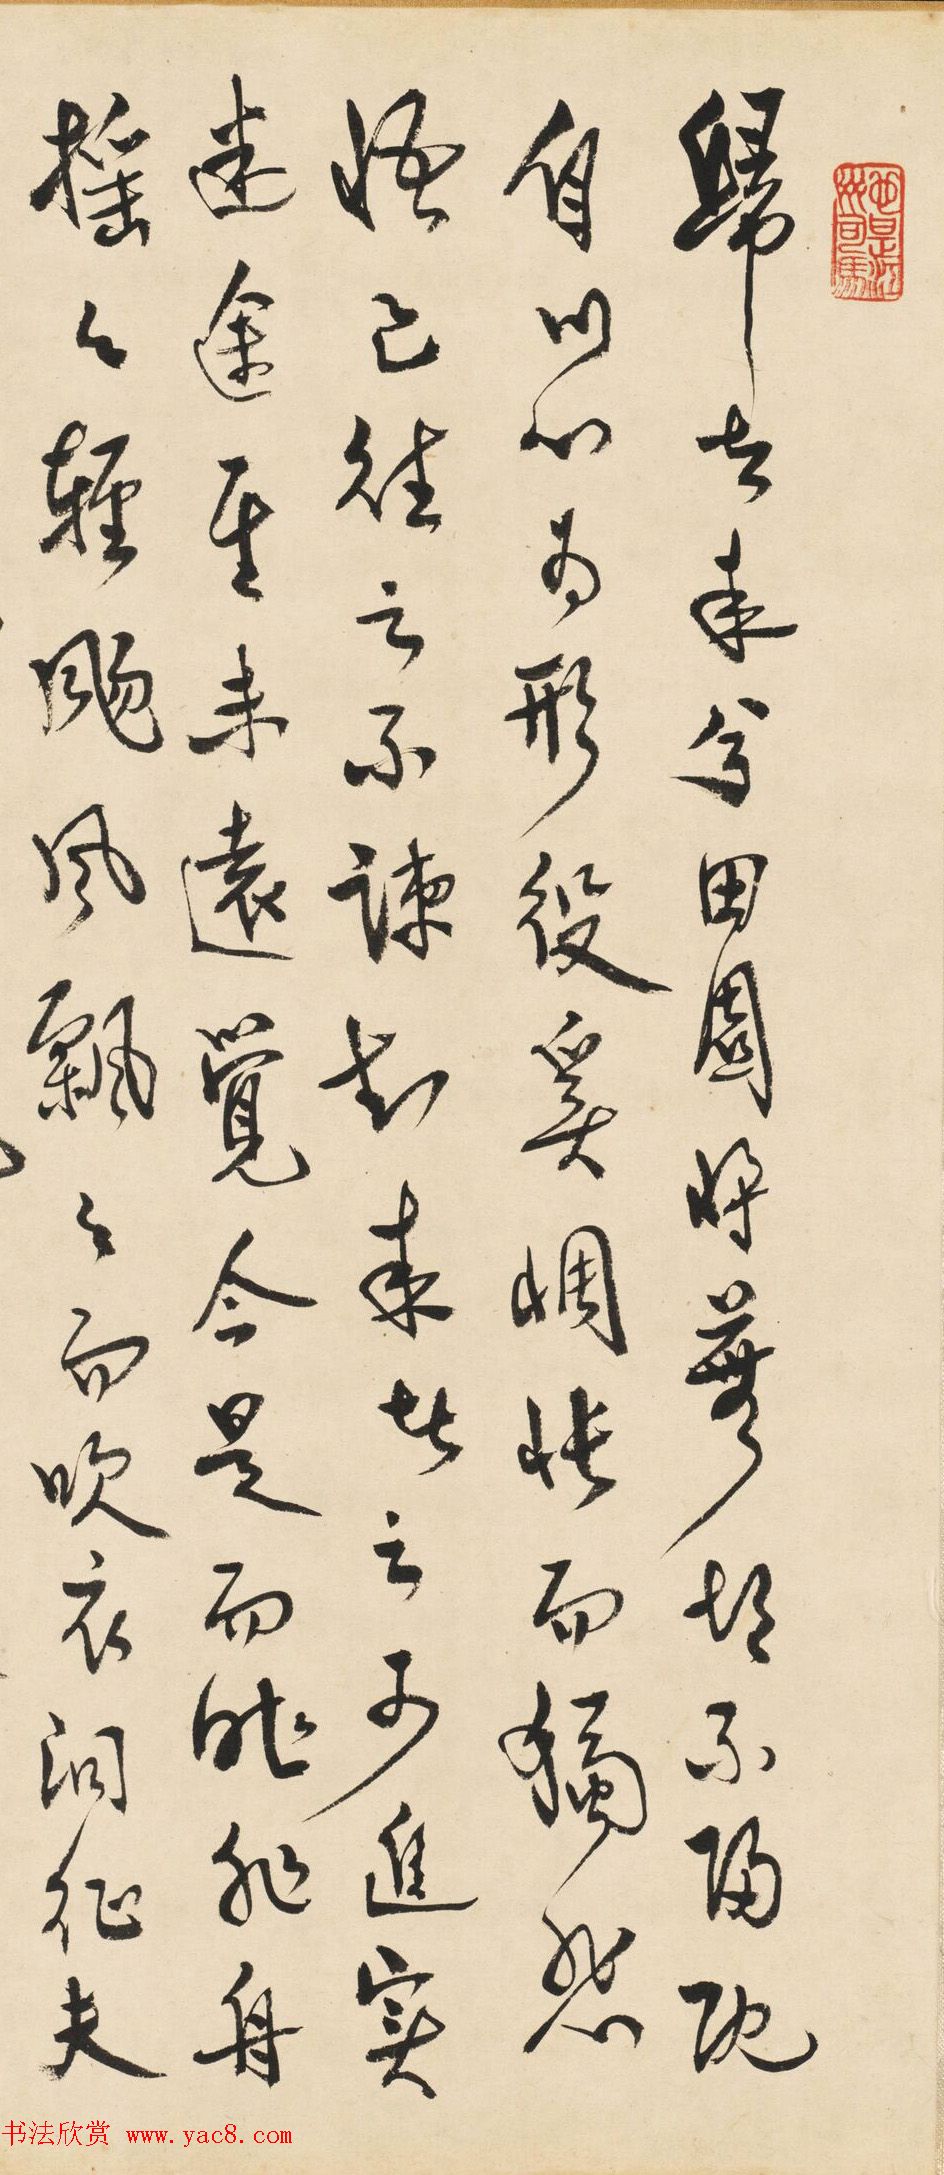 歸去来兮田園將蕪胡不歸既
自以心為形役奚惆悵而獨悲
悟已往之不諫知来者之可追實
迷途其未遠覺今是而昨非舟
搖々輕颺風飄々而吹衣問征夫
书法欣赏 www.yac8.com